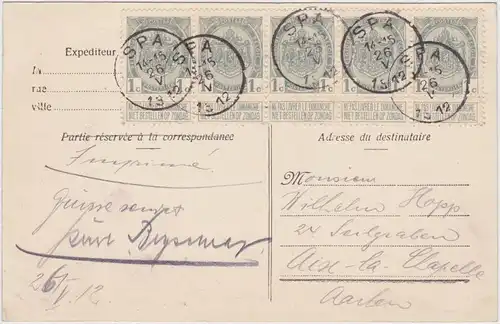 SPA SPA SPA SPA SPA
14-15 14-15 14-15
26 26 26 26 26
V V V V V
1912 1912 1912 1912 1912
1c 1c 1c 1c 1c
NE PAS LIVRER LE DIMANCHE
NIET BESTELLEN OP ZONDAG
Expediteur
M
rue
ville
Partie réservée à la correspondance
Imprimé
26/V. 12.
Adresse du destinataire
Monsieur
Wilhelm Hopp
24 Seilgraben
Aix-la-Chapelle
Aachen